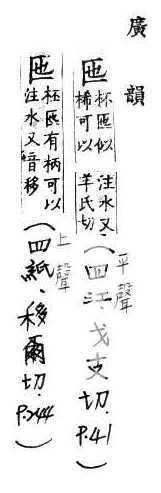 廣韻
匜 杯匜似桸可以注水又羊氏切(四江.戈支切.P.41)
平聲
匜 杯匜有柄可以注水又音移(四紙、移爾切.P.244)
上聲